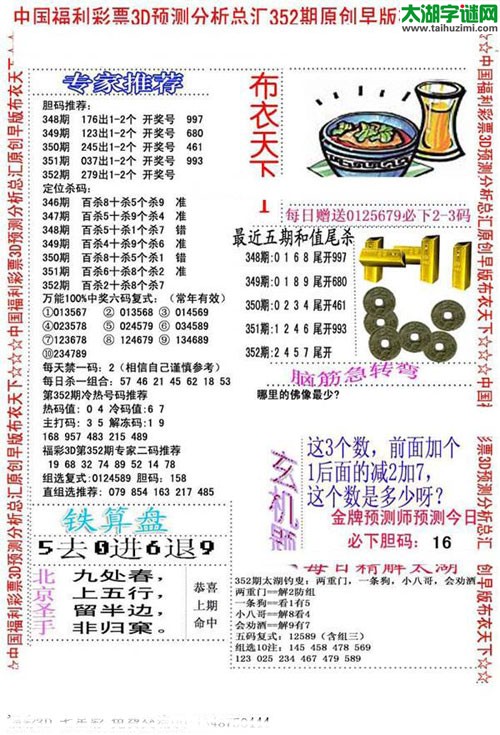 中国福利彩票3D预测分析总汇352期原创早版
太湖字谜网
www.taihuzimi.com
☆中国福利彩票3D预测分析总汇原创早版布衣天下☆☆☆中国福利彩票3D预测分析总汇原创早版布衣天下☆☆
专家推荐
胆码推荐:
348期 176出1-2个 开奖号 997
349期 123出1-2个 开奖号 680
350期 245出1-2个 开奖号 461
351期 037出1-2个 开奖号 993
352期 279出1-2个 开奖号
定位杀码:
346期 百杀8十杀5个杀9 准
347期 百杀0十杀4个杀5 准
348期 百杀5十杀1个杀7 错
349期 百杀3十杀4个杀1 准
350期 百杀0十杀1个杀1 错
351期 百杀6十杀8个杀2 准
352期 百杀2十杀8个杀7
万能100%中奖六码复式: (常年有效)
①013567 ②013568 ③014569
④023578 ⑤024579 ⑥034589
⑦123678 ⑧124679 ⑨134689
⑩234789
每天禁一码: 2 (相信自己谨慎参考)
每日杀一组合: 57 46 21 45 62 18 53
第352期冷热号码推荐
热码值: 0 4 冷码值:6 7
主打码: 3 5 解冻码:1 9
168 957 483 215 489
福彩3D第352期专家二码推荐
19 68 32 74 89 52 14 78
组选复式:0124589 胆码: 158
直组选推荐: 079 854 163 217 485
铁算盘
5去0进6退9
北京圣手
九处春,
上五行,
留半边,
非归窠。
恭喜
上期
命中
布衣天下
每日赠送0125679必下2-3码
最近五期和值尾杀
348期:0 1 6 8 尾开997
349期:0 1 8 9 尾开680
350期:0 2 3 4 尾开461
351期:1 2 4 6 尾开993
352期:2 4 5 7 尾开
脑筋急转弯
哪里的佛像最少?
玄机题
这3个数, 前面加个
1后面的减2加7,
这个数是多少呀?
金牌预测师预测今日
必下胆码: 16
每日精解太湖
352期太湖钓叟: 两重门, 一条狗, 小八哥, 会劝酒
两重门==解2防组
一条狗==看1有5
小八哥==解8看4
会劝酒==解9有7
五码复式: 12589 (含组三)
组选10注: 145 458 478 569
123 025 234 467 479 589